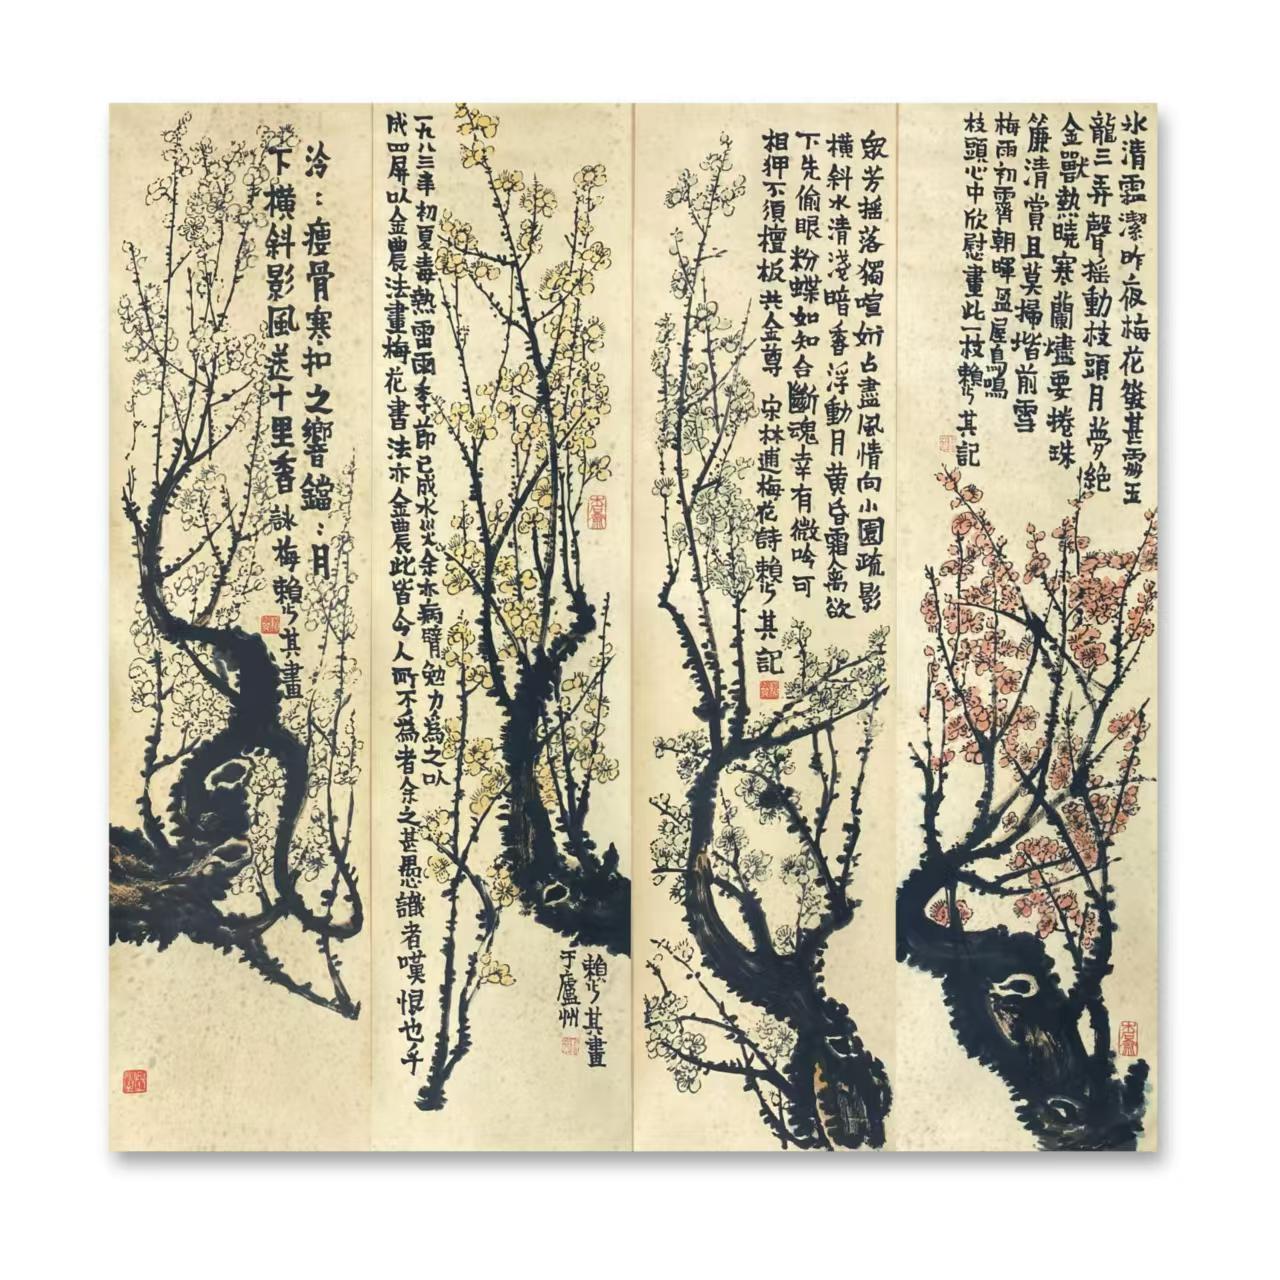 氷清霜潔昨夜梅花發甚處玉
龍三弄聲搖動枝頭月夢絕
金獸熱曉寒蘭燼要捲珠
簾清賞且莫掃堦前雪
梅雨初霽朝暉盈屋鳥鳴
枝頭心中欣慰畫此一枝賴少其記
衆芳搖落獨喧妍占盡風情向小園疏影
橫斜水清淺暗香浮動月黃昏霜禽欲
下先偷眼粉蝶如知合斷魂幸有微吟可
相狎不須檀板共金尊 宋林逋梅花詩賴少其記
一九八三年初夏毒熱雷雨季節已成水災余亦病臂勉力為之以
成四屏以金農法畫梅花書法亦金農此皆今人所不為者余之甚愚識者嘆恨也乎
賴少其畫
于廬州
泠:瘦骨寒扣之響鐺:月
下橫斜影風送十里香 詠梅賴少其畫